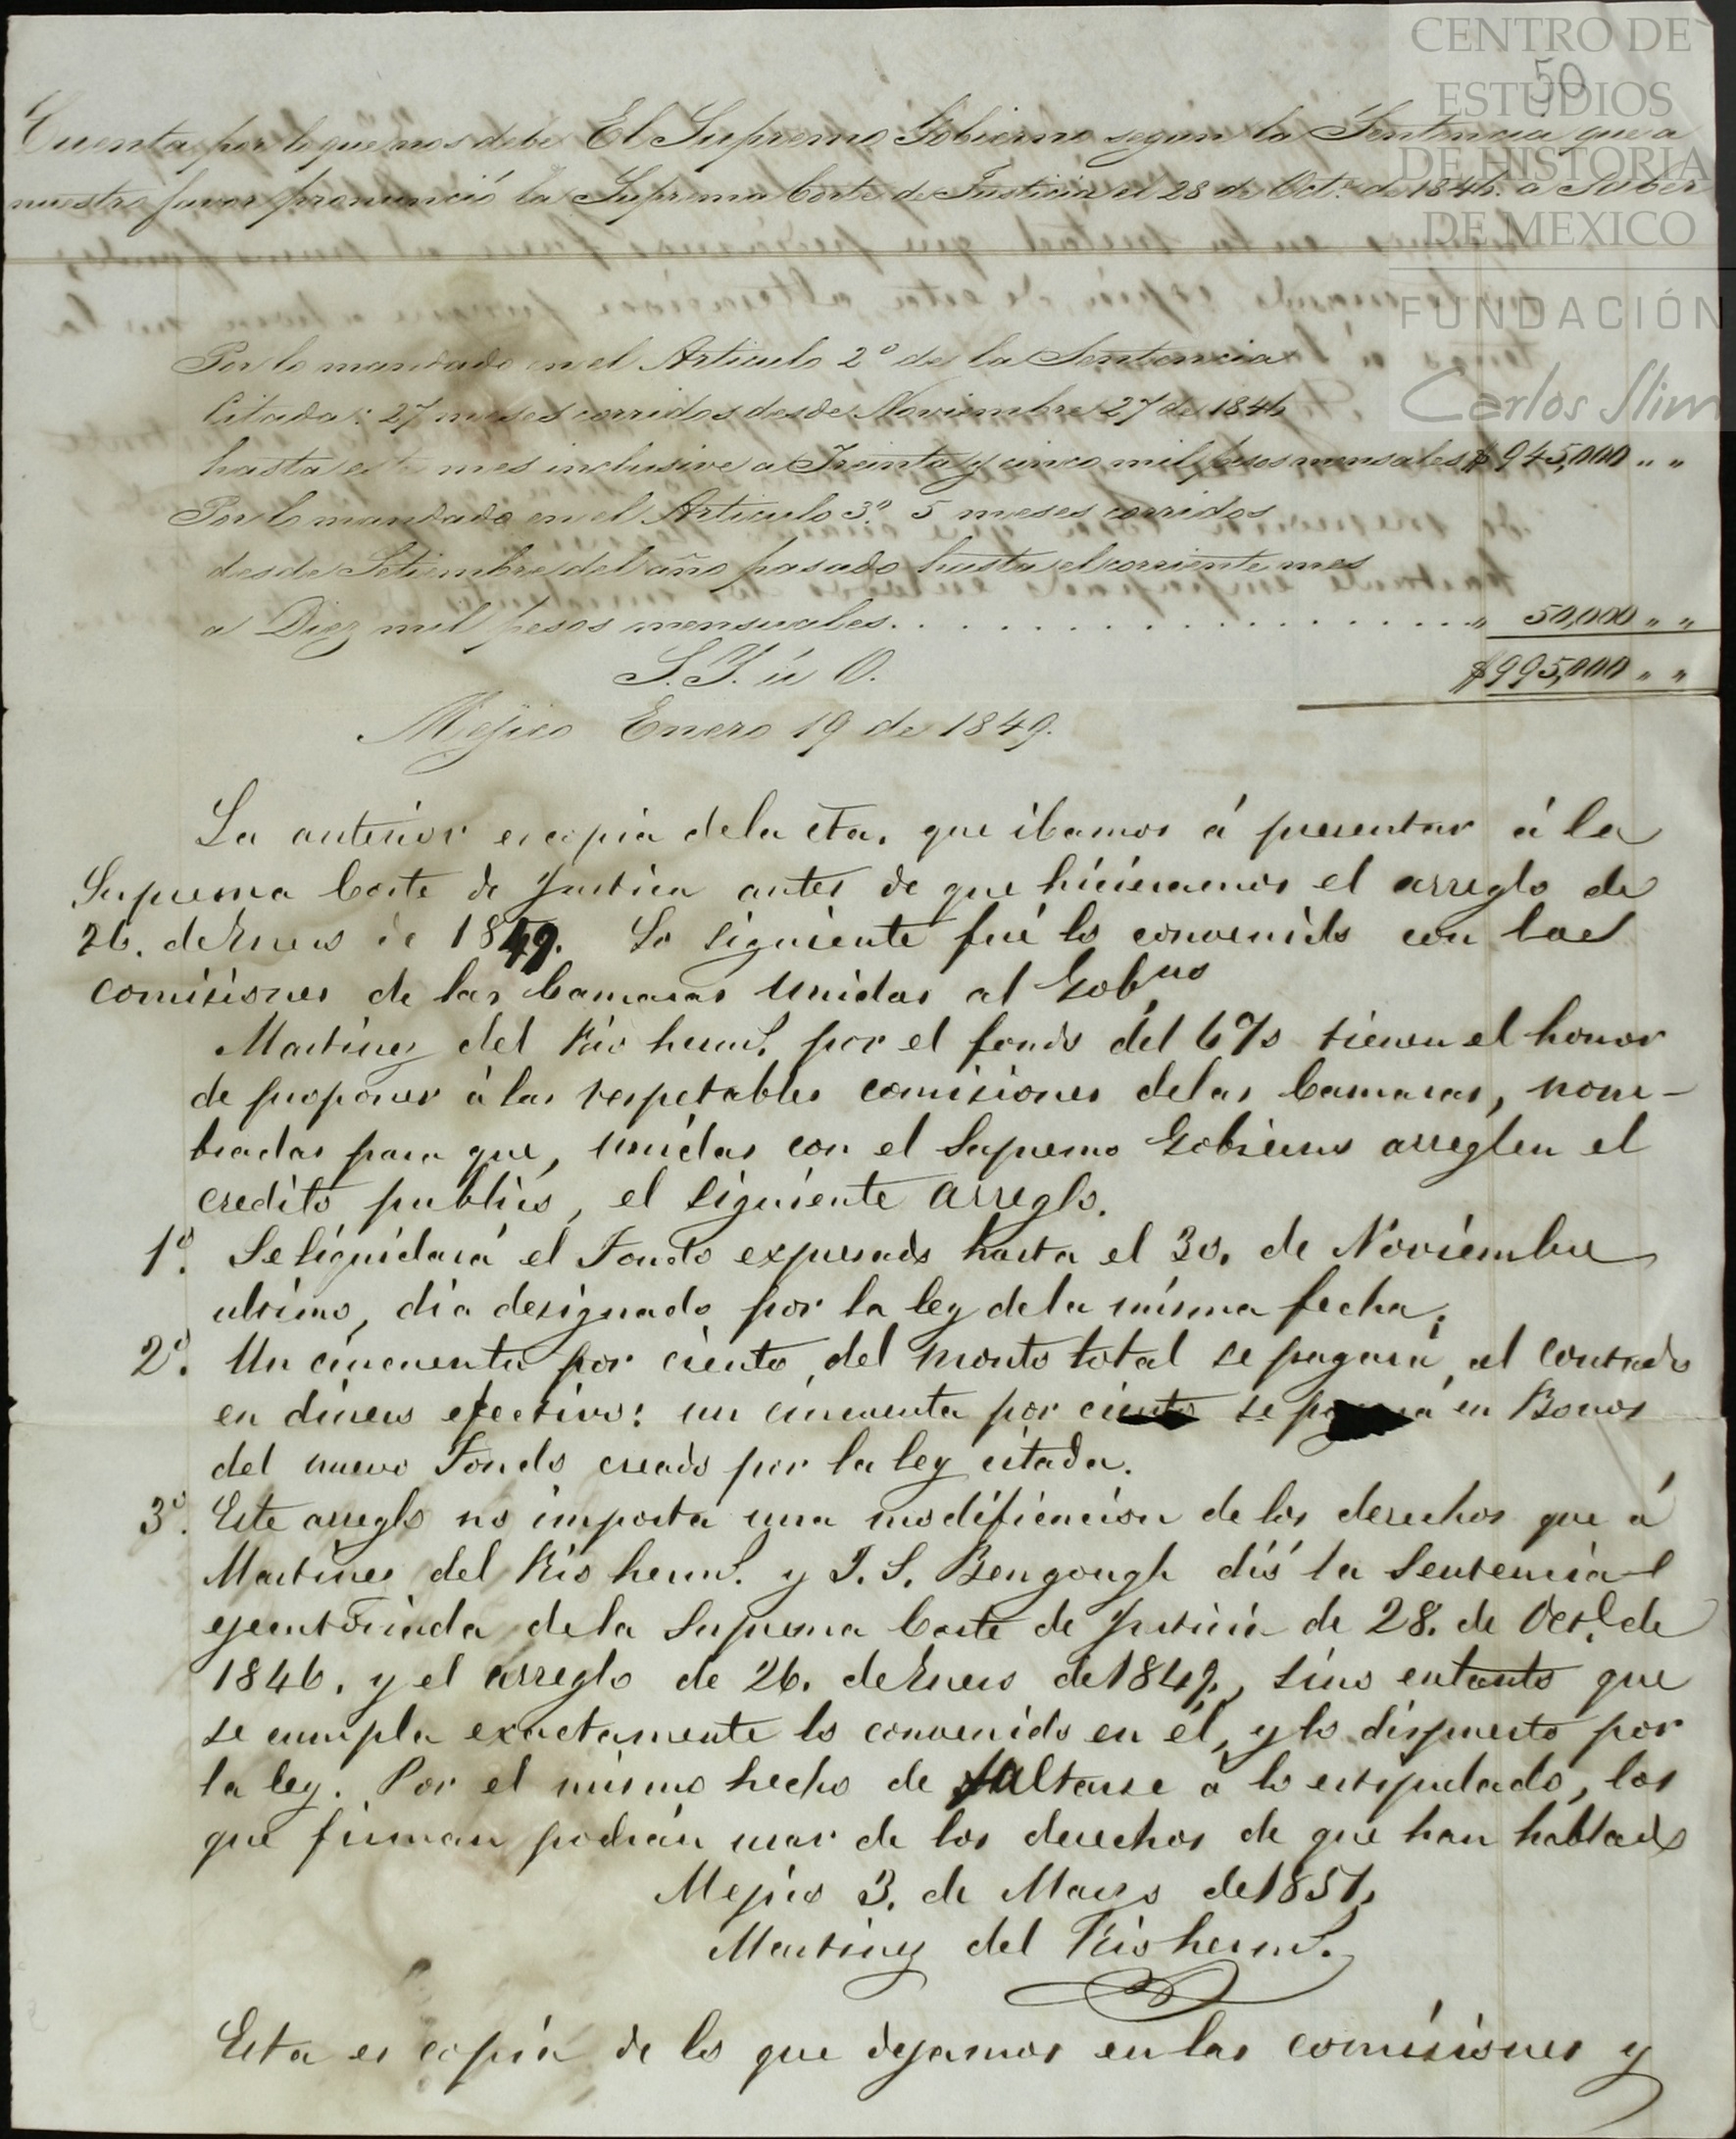 CENTRO DE
ESTUDIOS
DE HISTORIA
DE MEXICO
FUNDACIÓN
Carlos Slim
50
Cuenta por lo que nos debe El Supremo Gobierno segun la Sentencia que a
nuestro favor pronunció la Suprema Corte de Justicia el 28 de Oct.e de 1846. a Saber
Por lo mandado en el Articulo 2º de la Sentencia
Citada: 27 meses corridos desde Noviembre 27 de 1846
hasta este mes inclusive a Treinta y cinco mil pesos mensales $ 945,000 " "
Por lo mandado en el Articulo 3º. 5 meses corridos
desde Setiembre del año pasado hasta el corriente mes
a Diez mil pesos mensuales. . . . . . . . . . . . . . . . . . . " 50,000 " "
S. Y. ú O. $995,000 " "
Mejico Enero 19 de 1849.
La anterior es copia de la cta. que ibamos á presentar á la
Suprema Corte de Justicia antes de que hicieramos el arreglo de
26. de Enero de 1849. Lo siguiente fué lo convenido con las
comisiones de las Camaras unidas al Gobno
Martinez del Rio herms. por el fondo del 6% tienen el honor
de proponer á las respetables comisiones de las Camaras, nom-
bradas para que, unidas con el Supremo Gobierno arreglen el
credito publico, el siguiente arreglo.
1º. Se liquidará el Fondo expresado hasta el 30. de Noviembre
ultimo, dia designado por la ley de la misma fecha.
2º. Un cincuenta por ciento del monto total se pagará al contado
en dinero efectivo: un cincuenta por ciento se pagará en Bonos
del nuevo Fondo creado por la ley citada.
3º. Este arreglo no importa una modificacion de los derechos que á
Martinez del Rio herms. y J. S. Bengough dió la Sentencia
ejecutoriada de la Suprema Corte de Justicia de 28. de Oct.e de
1846. y el arreglo de 26. de Enero de 1849., sino entanto que
se cumpla exactamente lo convenido en él, y lo dispuesto por
la ley. Por el mismo hecho de faltarse á lo estipulado, los
que firman podrán usar de los derechos de que han hablado
Mejico 3. de Marzo de 1851.
Martinez del Rio herms.
Esta es copia de lo que dejamos en las comisiones y